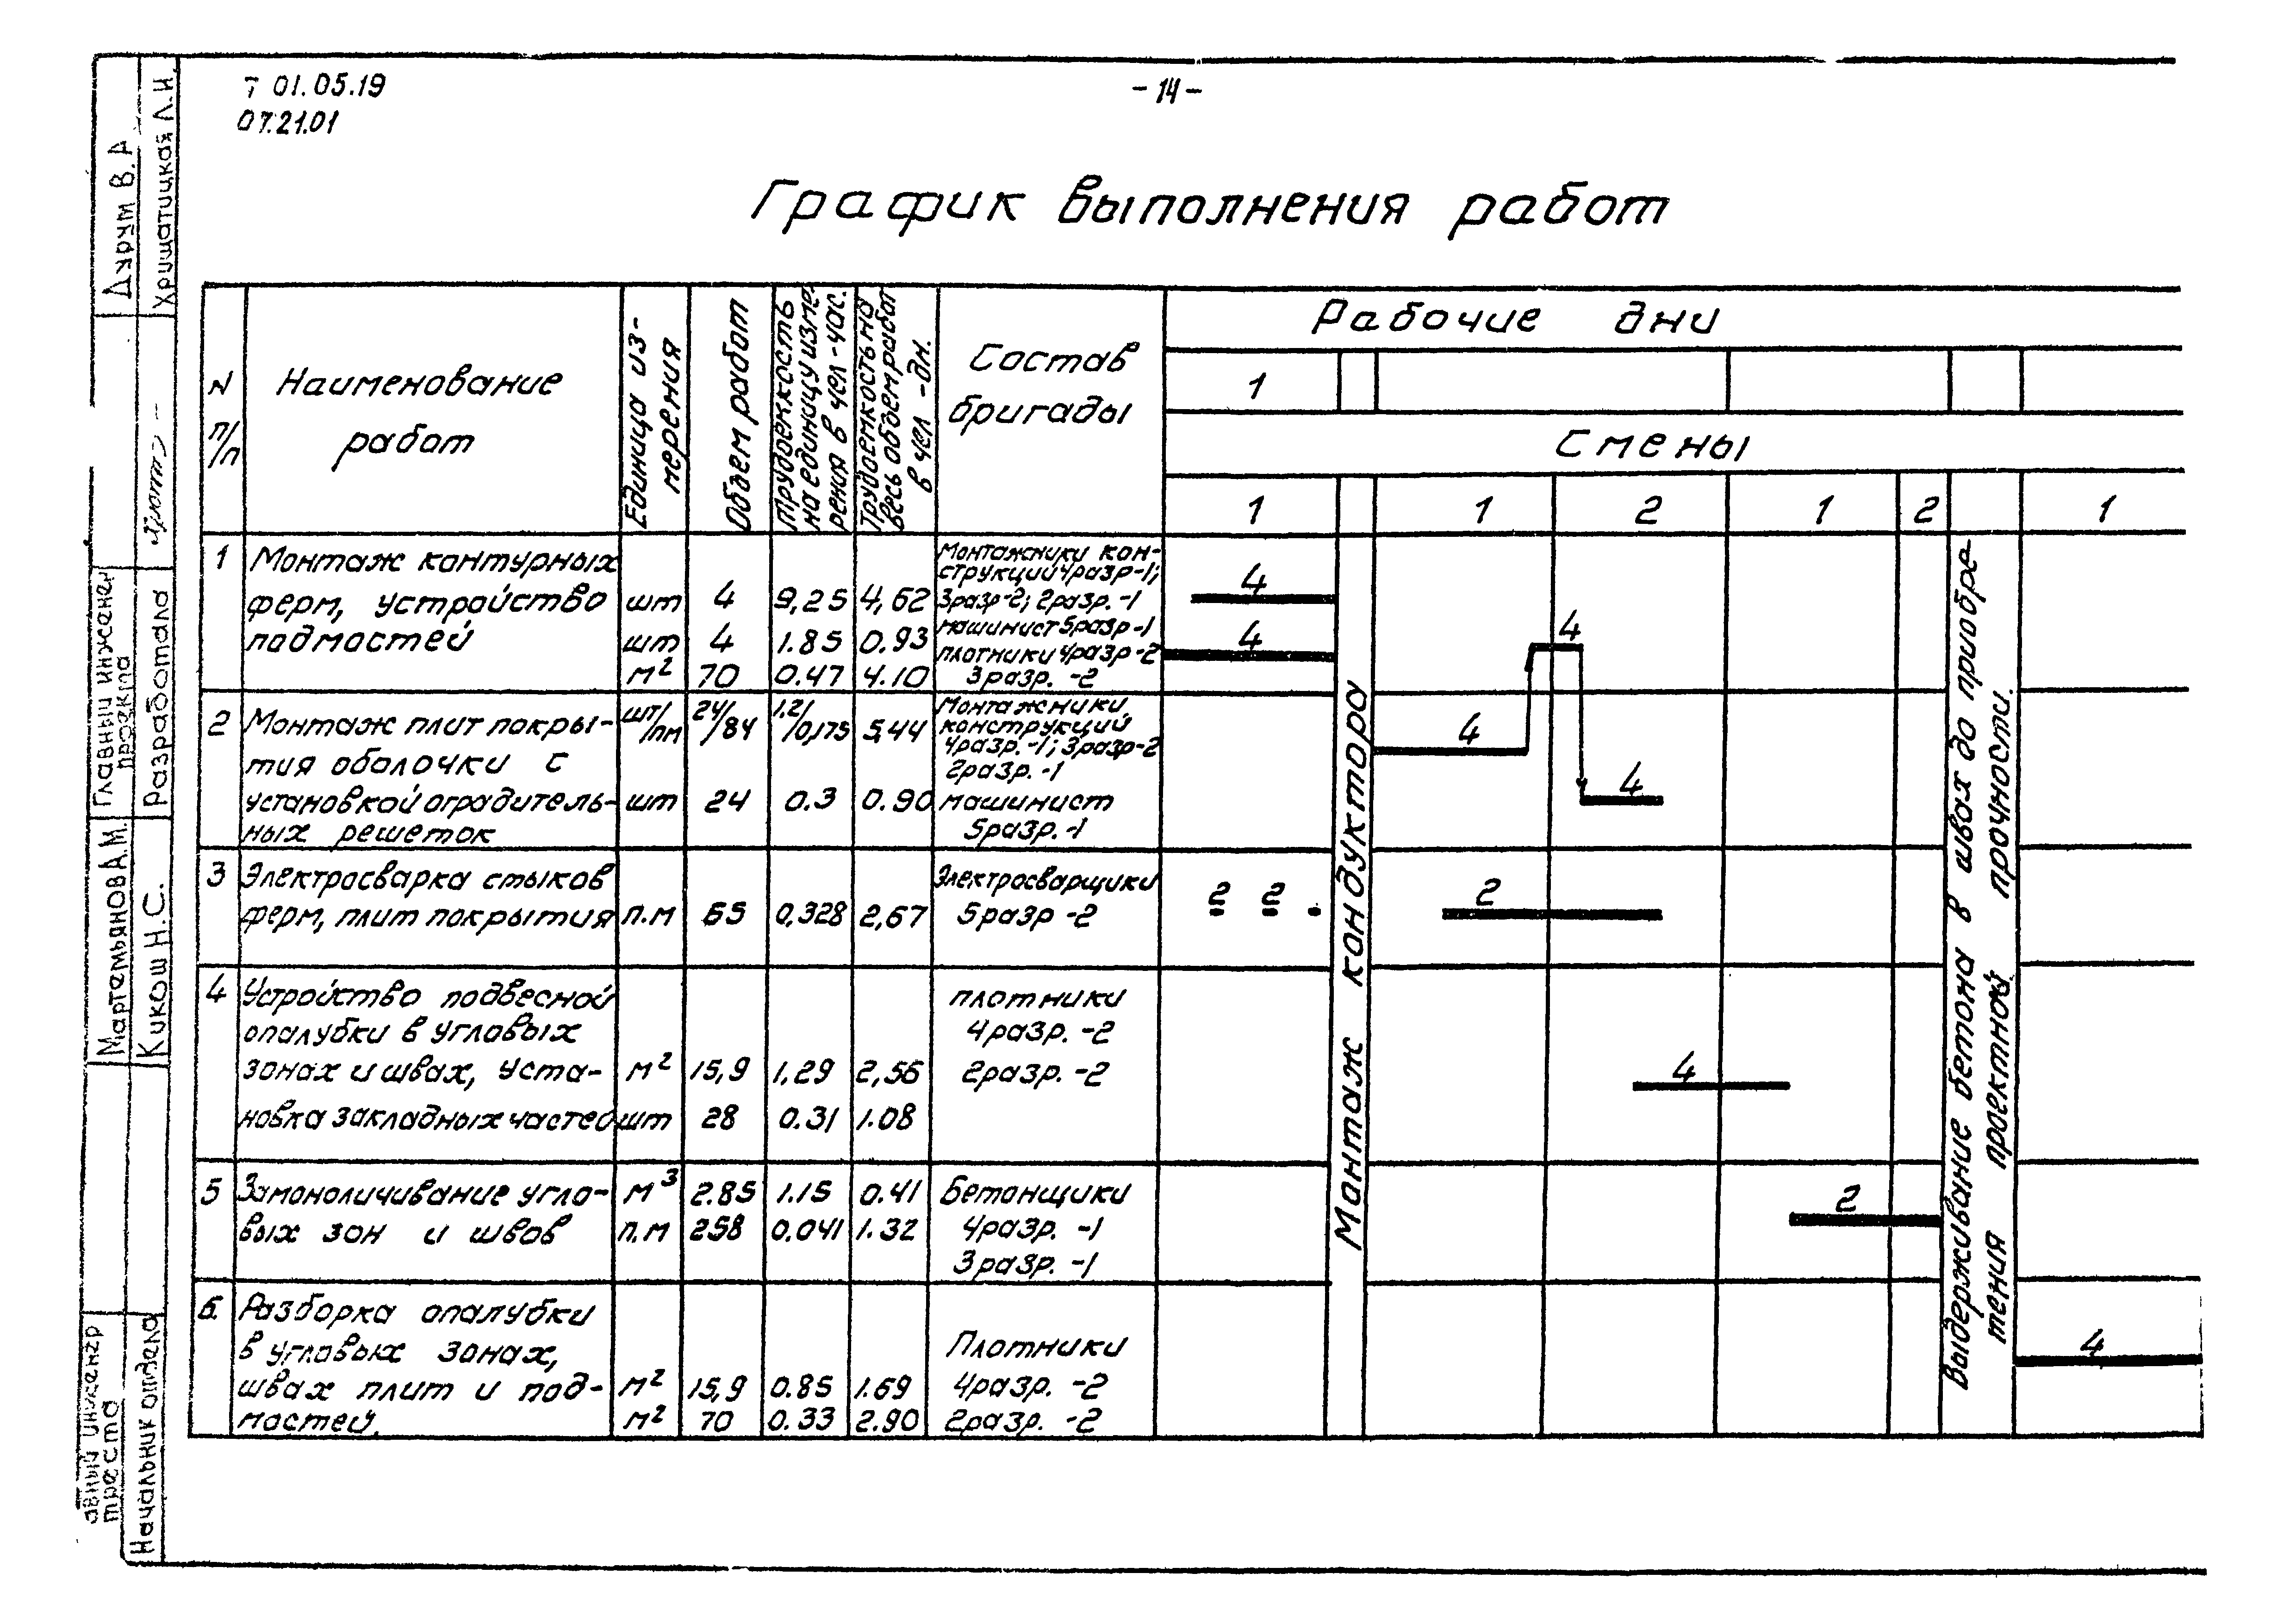 7 01.05.19
07.21.01
- 14 -
График выполнения работ
N п/п
Наименование работ
Единица из-
мерения
Объем работ
Трудоемкость
на единицу изме-
рения в чел-час.
Трудоемкость на
весь объем работ
в чел-дн.
Состав
бригады
Рабочие дни
1
Смены
1 1 2 1 2 1
1 Монтаж контурных
ферм, устройство шт 4 9,25 4,62
подмостей шт 4 1.85 0.93
м² 70 0.47 4.10
Монтажники кон-
струкций 4разр-1;
3разр-2; 2разр.-1
машинист 5разр-1
плотники 4разр-2
3разр. -2
4
4
2 Монтаж плит покры- шт/пм 24/84 1,2/0,175 5,44
тия оболочки с
установкой оградитель- шт 24 0.3 0.90
ных решеток
Монтажники
конструкций
4разр.-1; 3разр-2
2разр.-1
машинист
5разр.-1
4
4
4
3 Электросварка стыков
ферм, плит покрытия п.м 65 0,328 2,67
Электросварщики
5разр -2
2 2 2
4 Устройство подвесной
опалубки в угловых
зонах и швах, уста- м² 15,9 1,29 2,56
новка закладных частей шт 28 0.31 1.08
плотники
4разр. -2
2разр. -2
4
5 Замоноличивание угло- м³ 2.85 1.15 0.41
вых зон и швов п.м 258 0.041 1.32
Бетонщики
4разр. -1
3разр. -1
2
6. Разборка опалубки
в угловых зонах,
швах плит и под- м² 15,9 0.85 1.69
мостей. м² 70 0.33 2.90
Плотники
4разр. -2
2разр. -2
4
Монтаж кондуктора
Выдерживание бетона в швах до приобре-
тения проектной прочности.
Дурум В.А
Хрищатицкая Л.И.
Главный инженер
проекта
Разработала
Мартемьянов А.М.
Кикош Н.С.
авный инженер
треста
Начальник отдела